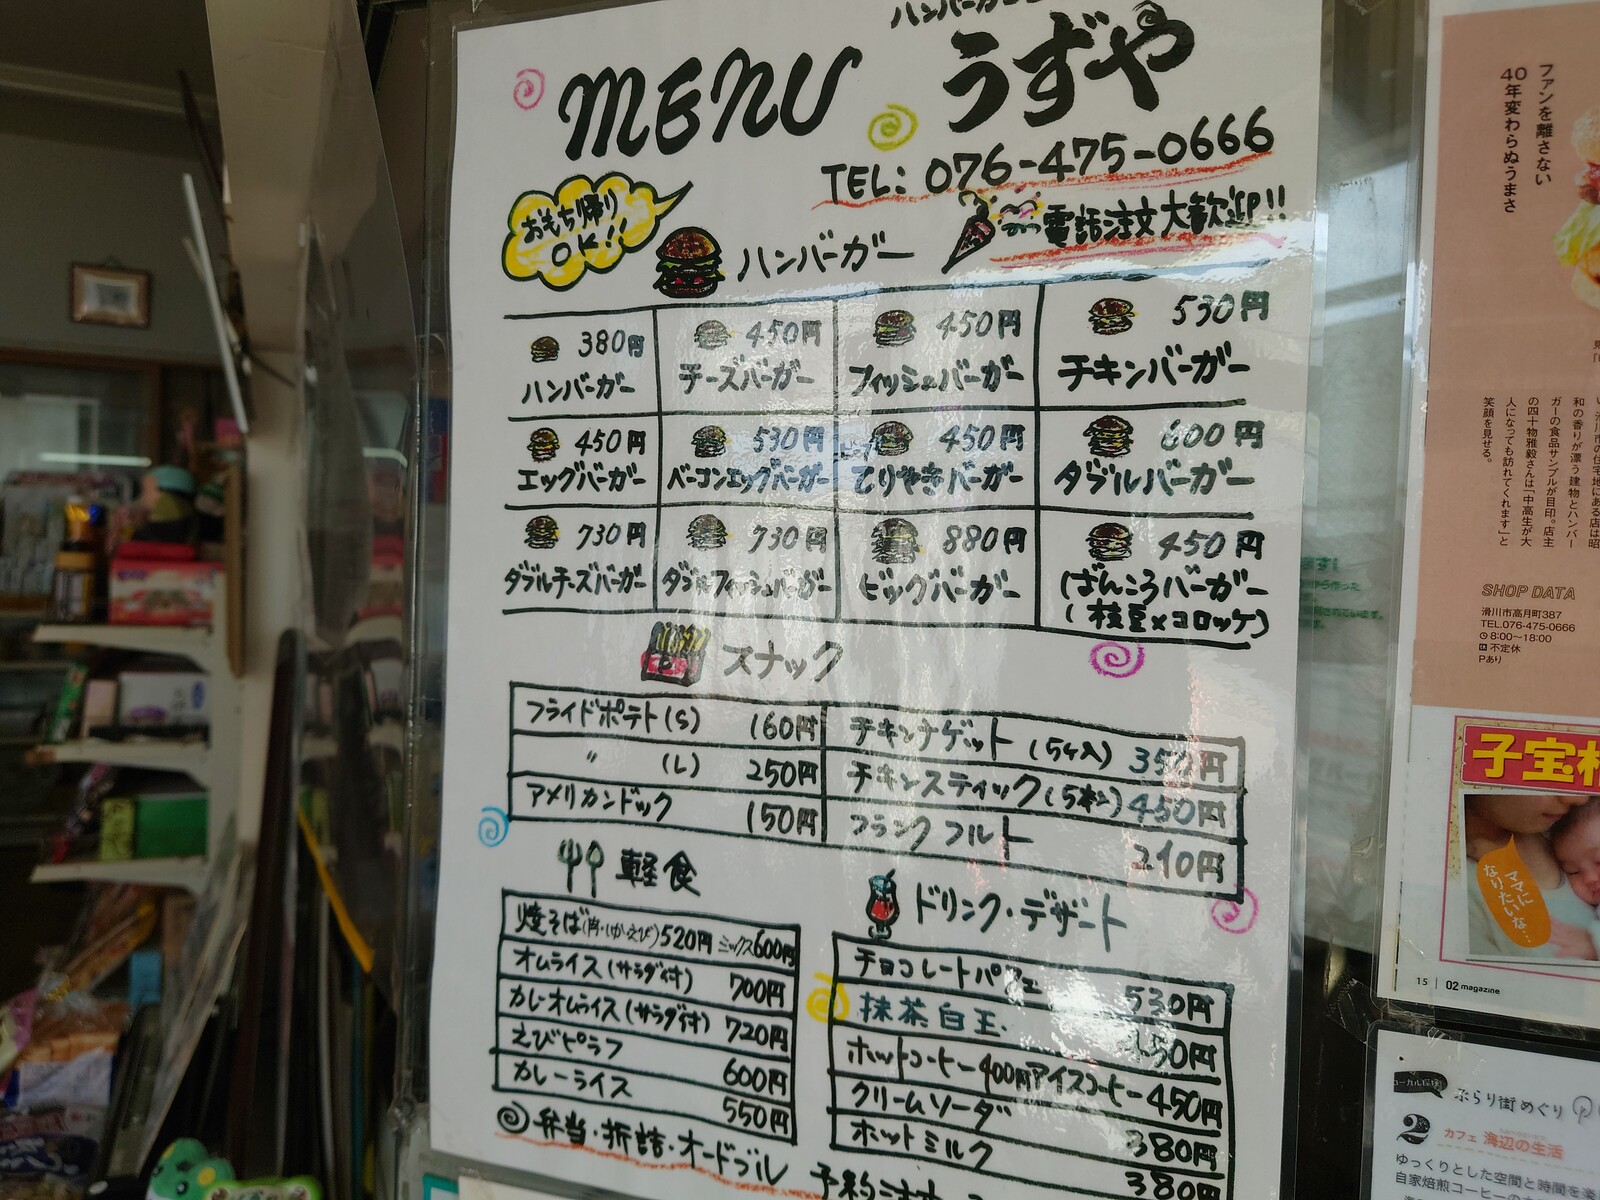 MENU
うずや
TEL: 076-475-0666
電話注文大歓迎!!
おもち帰り
OK!!
ハンバーガー
380円
ハンバーガー
450円
チーズバーガー
450円
フィッシュバーガー
530円
チキンバーガー
450円
エッグバーガー
530円
ベーコンエッグバーガー
450円
てりやきバーガー
600円
ダブルバーガー
730円
ダブルチーズバーガー
730円
ダブルフィッシュバーガー
880円
ビッグバーガー
450円
ばんころバーガー
(枝豆×コロッケ)
スナック
フライドポテト(S) 160円
〃 (L) 250円
アメリカンドック 150円
チキンナゲット(5ヶ入) 350円
チキンスティック(5本) 450円
フランクフルト 210円
軽食
焼そば(肉・いか・えび)520円 ミックス600円
オムライス(サラダ付) 700円
カレーオムライス(サラダ付) 720円
えびピラフ 600円
カレーライス 550円
弁当・折詰・オードブル
ドリンク・デザート
チョコレートパフェ 530円
抹茶白玉
ホットコーヒー400円アイスコーヒー450円
クリームソーダ 380円
ホットミルク 380円
ファンを離さない
40年変わらぬうまさ
和の香りが漂う建物とハンバー
ガーの食品サンプルが目印。店主
の四十物雅毅さんは「中高生が大
人になっても訪れてくれます」と
笑顔を見せる。
SHOP DATA
滑川市高月町387
TEL.076-475-0666
8:00〜18:00
休 不定休
Pあり
子宝
ママに
なりたいな…
15 | 02 magazine
ぶらり街めぐり
2
カフェ 海辺の生活
ゆっくりとした空間と時間を
自家焙煎コーヒー